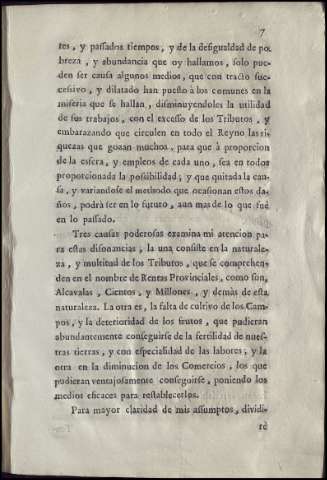 7
res, y passados tiempos, y de la desigualdad de po-
breza, y abundancia que oy hallamos, solo pue-
den ser causa algunos medios, que con tracto suc-
cessivo, y dilatado han puesto à los comunes en la
miseria que se hallan, disminuyendoles la utilidad
de sus trabajos, con el excesso de los Tributos, y
embarazando que circulen en todo el Reyno las ri-
quezas que gozan muchos, para que à proporcion
de la esfera, y empleos de cada uno, sea en todos
proporcionada la possibilidad; y que quitada la cau-
sa, y variandose el methodo que ocasionan estos da-
ños, podrà ser en lo futuro, aun mas de lo que fué
en lo passado.
Tres causas poderosas examina mi atencion pa-
ra estas disonancias, la una consiste en la naturale-
za, y multitud de los Tributos, que se comprehen-
den en el nombre de Rentas Provinciales, como son,
Alcavalas, Cientos, y Millones, y demàs de esta
naturaleza. La otra es, la falta de cultivo de los Cam-
pos, y la deterioridad de los frutos, que pudieran
abundantemente conseguirse de la fertilidad de nues-
tras tierras, y con especialidad de las labores; y la
otra en la diminucion de los Comercios, los que
pudieran ventajosamente conseguirse, poniendo los
medios eficaces para restablecerlos.
Para mayor claridad de mis assumptos, dividi-
rè